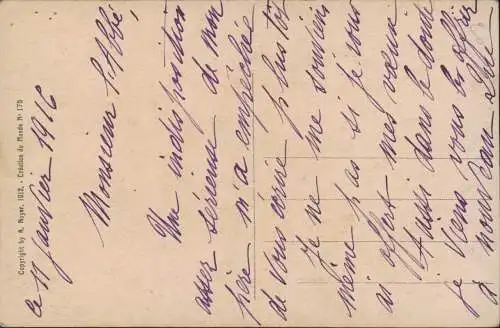 ce 11 janvier 1916
Monsieur l'Abbé,
Une indisposition
assez sérieuse de mon
père m'a empêchée
de vous écrire plus tôt
Je ne me souviens
même pas si je vous
ai offert mes vœux
Aussi dans le doute
je viens vous les offrir
Copyright by A. Noyer, 1912. - Création du Monde Nº 175